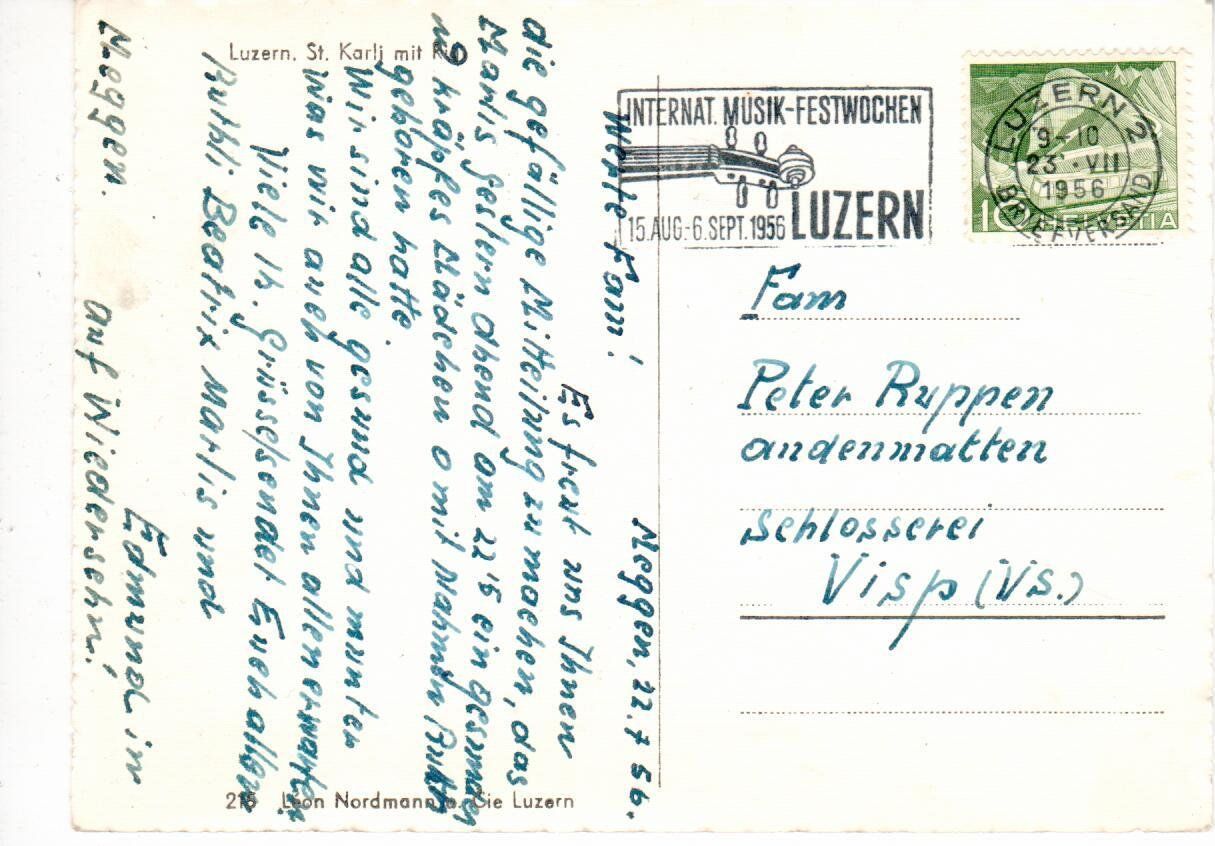 Luzern, St. Karli mit
INTERNAT. MUSIK-FESTWOCHEN
LUZERN
15. AUG.-6. SEPT. 1956
LUZERN 2
9-10
23. VII
1956
BRIEFVERSAND
10 HELVETIA
Fam
Peter Ruppen
andenmatten
Schlosserei
Visp (VS.)
Meggen, 22. 7 56.
Werte Fam!
Es freut uns Ihnen
die gefällige Mitteilung zu machen, das
Marlis gestern abend am 22 15 ein gesundes
u kräftes Mädchen mit Nahmen
geboren hatte
Wir sind alle gesund und munter
Was wir auch von Ihnen allen erwarten.
Viele h. Grüsse sendet Euch allen
Ruthli Beatrix Marlis und
Edmund in
Meggen. auf Wiedersehn!
215 Leon Nordmann u. Cie Luzern